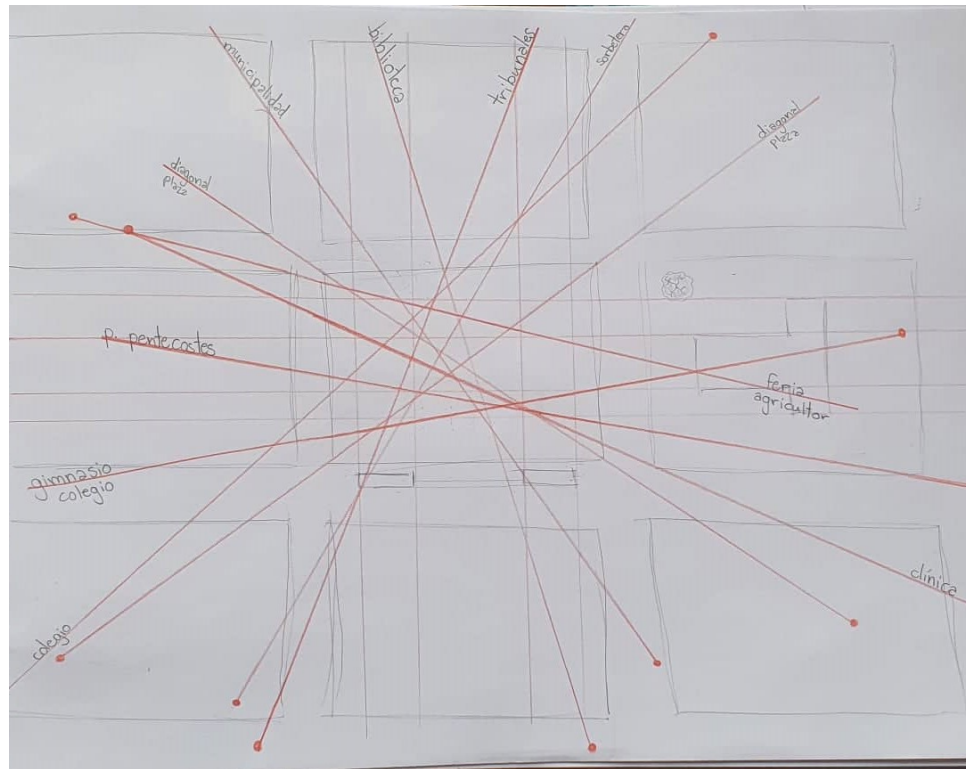 municipalidad
biblioteca
tribunales
Sorbetera
diagonal
plaza
diagonal
plaza
P. pentecostes
feria
agricultor
gimnasio
colegio
clínica
colegio